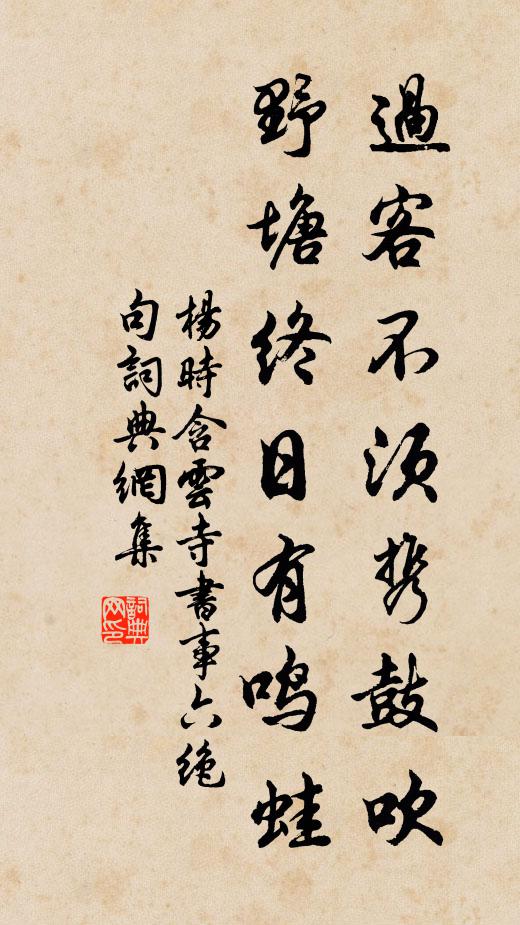 過客不須携鼓吹
野塘終日有鳴蛙
楊時含雲寺書事六絶
句詞典網集
詞典
网印